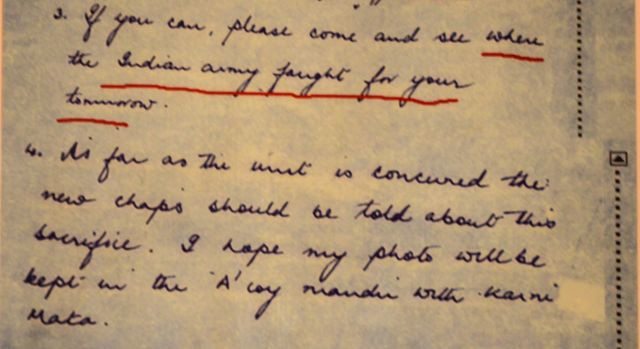 3. If you can, please come and see where
the Indian army fought for your
tomorrow.
4. As far as the unit is concured the
new chaps should be told about this
sacrifice. I hope my photo will be
kept in the 'A' coy mandir with Karni
Mata.